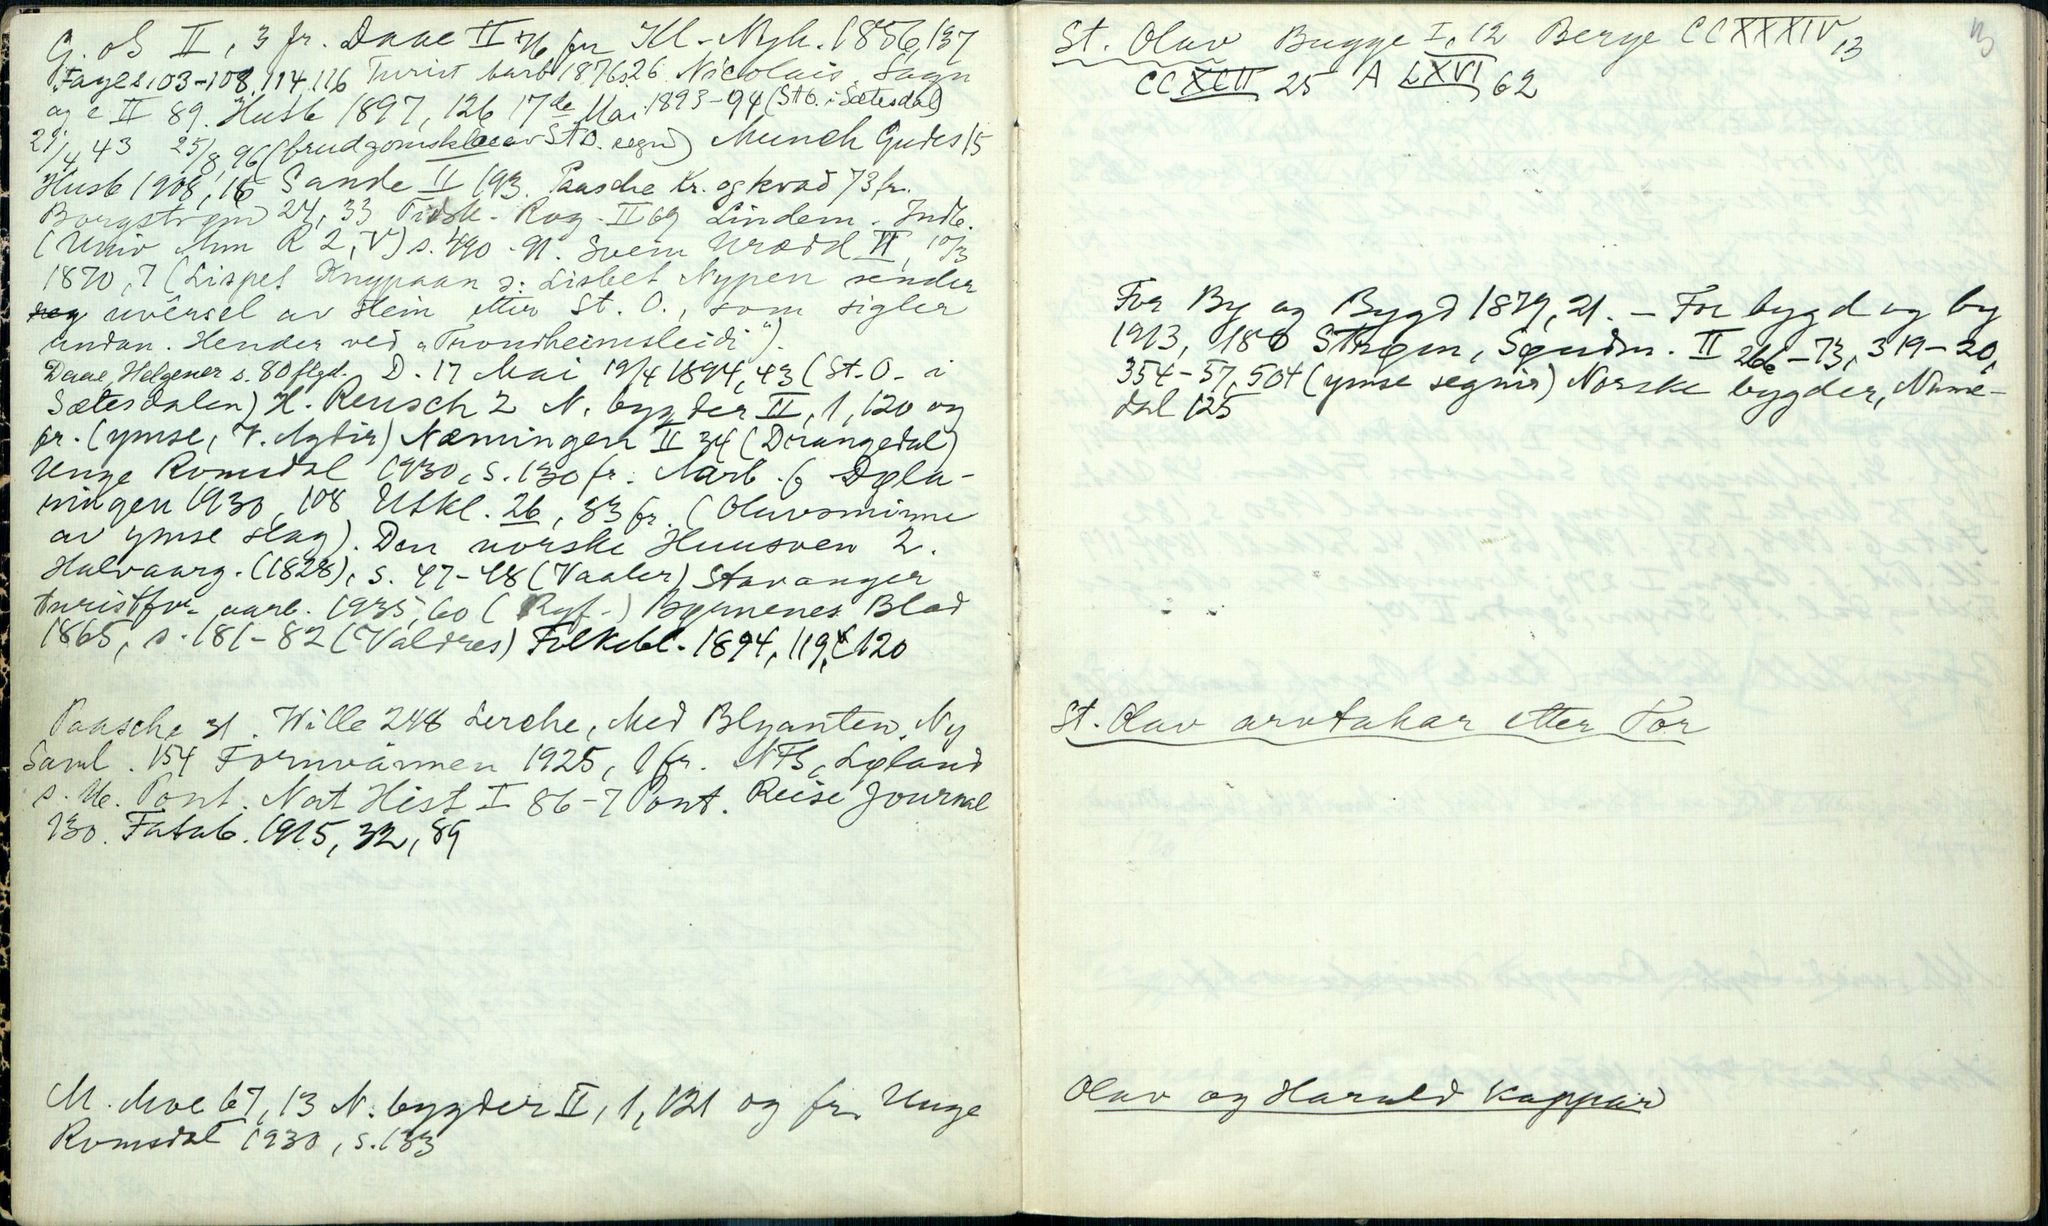 G. oS II, 3 fr. Daae II 76 fr Kl-Nyh. 1856, 137
Faye s. 103-108, 114, 116 Turist aarb 1876 s 26 Nicolais. Sagn
og e II 89. Husb 1897, 126 17de Mai 1893-94 (St O. i Sætesdal)
21/4 43 25/8, 96 (brudgomsklæe av St O. segn) Munch Gudes 15
Husb 1908, 16 Sande II 193. Paasche Kr. og kvad 73 fr.
Borgstrøm 24, 33 Tidsk. Rog. II 69 Lindem. Indb.
(Univ Ann R 2, V) s. 490-91. Svein Uræd VI, 10/3
1870, 7 (Lispet Knypaan ɔ: Lisbet Nypen sender
uversel av Hein etter St. O., som sigler
undan. Hender ved "Trondheimsleidi").
Daae, Helgener s. 80 flgd. D. 17 Mai 19/4 1894, 43 (St. O. i
Sætesdalen) H. Reusch 2 N. bygder II, 1, 120 og
fr. (ymse, V. Agdir) Næmingen II 34 (Drangedal)
Unge Romsdal 1930, s. 130 fr. Aarb. f Døla-
ningen 1930, 108 Utkl. 26, 83 fr. (Olavsminne
av ymse slag). Den norske Huusven 2.
Halvaarg. (1828), s. 47-48 (Vaaler) Stavanger
turistfor. aarb. 1935, 60 (Ryf.) Børnenes Blad
1865, s. 181-82 (Valdres) Folkebl. 1894, 119, 120
Paasche 31. Wille 248 Lerche, Med Blyanten. Ny
Saml. 154 Fornvännen 1925, 1 fr. NFS, Løland
s. Pont. Nat Hist I 86-7 Pont. Reise Journal
130. Fatab. 1915, 32, 89
M. Moe 67, 13 N. bygder II, 1, 121 og fr. Unge
Romsdal 1930, s. 133
St. Olav Bugge I, 12 Berge CCXXXIV, 13
CCXCII 25 A LXVI, 62
13
For By og Bygd 1879, 21. – For bygd og by
1913, 180 Strøm, Søndm. II 266-73, 319-20,
354-57, 504 (ymse segnir) Norske bygder, Nume-
dal 125
St. Olav arvtakar etter Tor
Olav og Harald Kappar